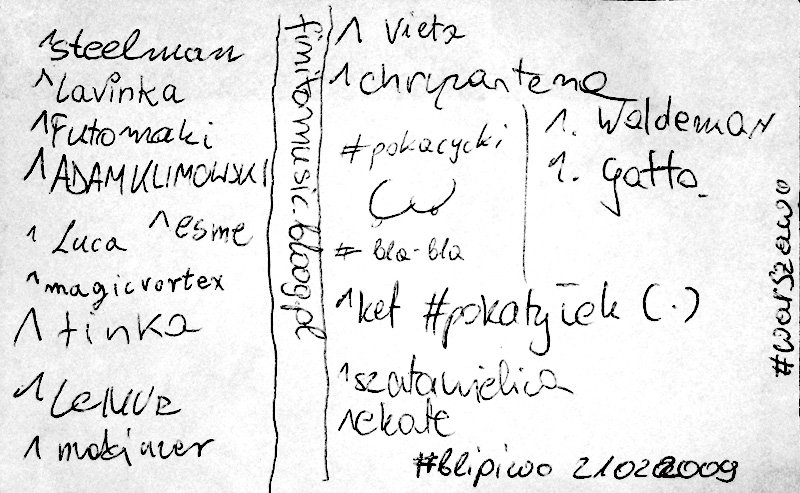 ^steelman
^Lavinka
^Futomaki
^ADAM KLIMOWSKI
^Luca ^esme
^magicvortex
^tinka
^Lemur
^makiwer
fimitomusic.bloog.pl
^Vieta
^chrypantema
#pokacycki
#bla-bla
^. Waldeman
^. gatto.
^ket #pokatyłek (.)
^szatawielica
^ekate
#blipiwo 21022009
#warszawo